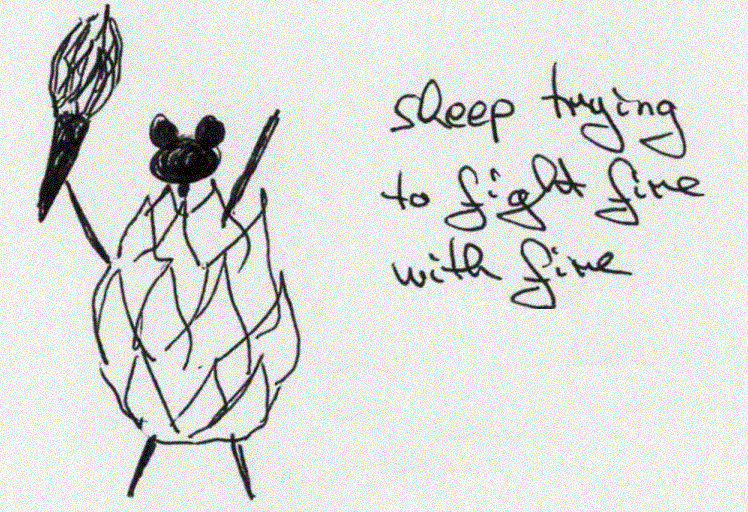 sheep trying
to fight fire
with fire